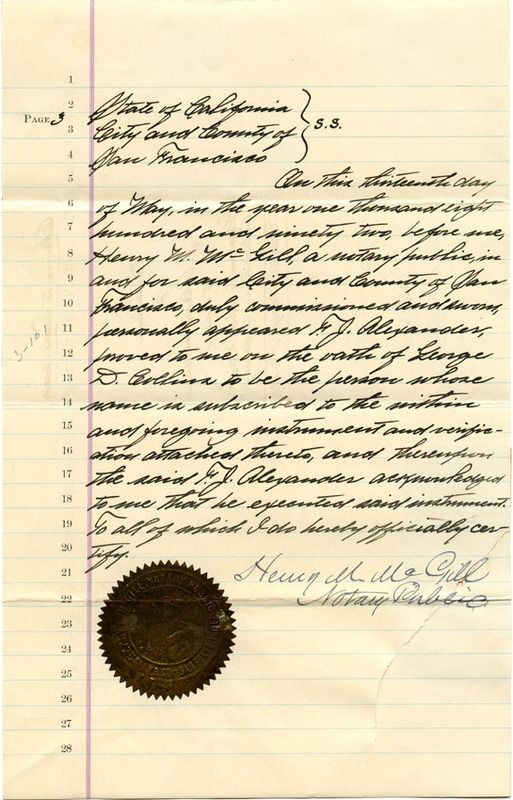 1
2 State of California
PAGE 3
3 City and County of } S.S.
4 San Francisco
5 On this thirteenth day
6 of May, in the year one thousand eight
7 hundred and ninety two, before me,
8 Henry M. McGill, a notary public, in
9 and for said City and County of San
10 Francisco, duly commissioned and sworn,
11 personally appeared F. J. Alexander,
3-101
12 proved to me on the oath of George
13 D. Collins to be the person whose
14 name is subscribed to the within
15 and foregoing instrument and verific-
16 ation attached thereto, and thereupon
17 the said F. J. Alexander acknowledged
18 to me that he executed said instrument.
19 To all of which I do hereby officially cer-
20 tify.
21 Henry M. McGill
22 Notary Public
23
24
25
26
27
28